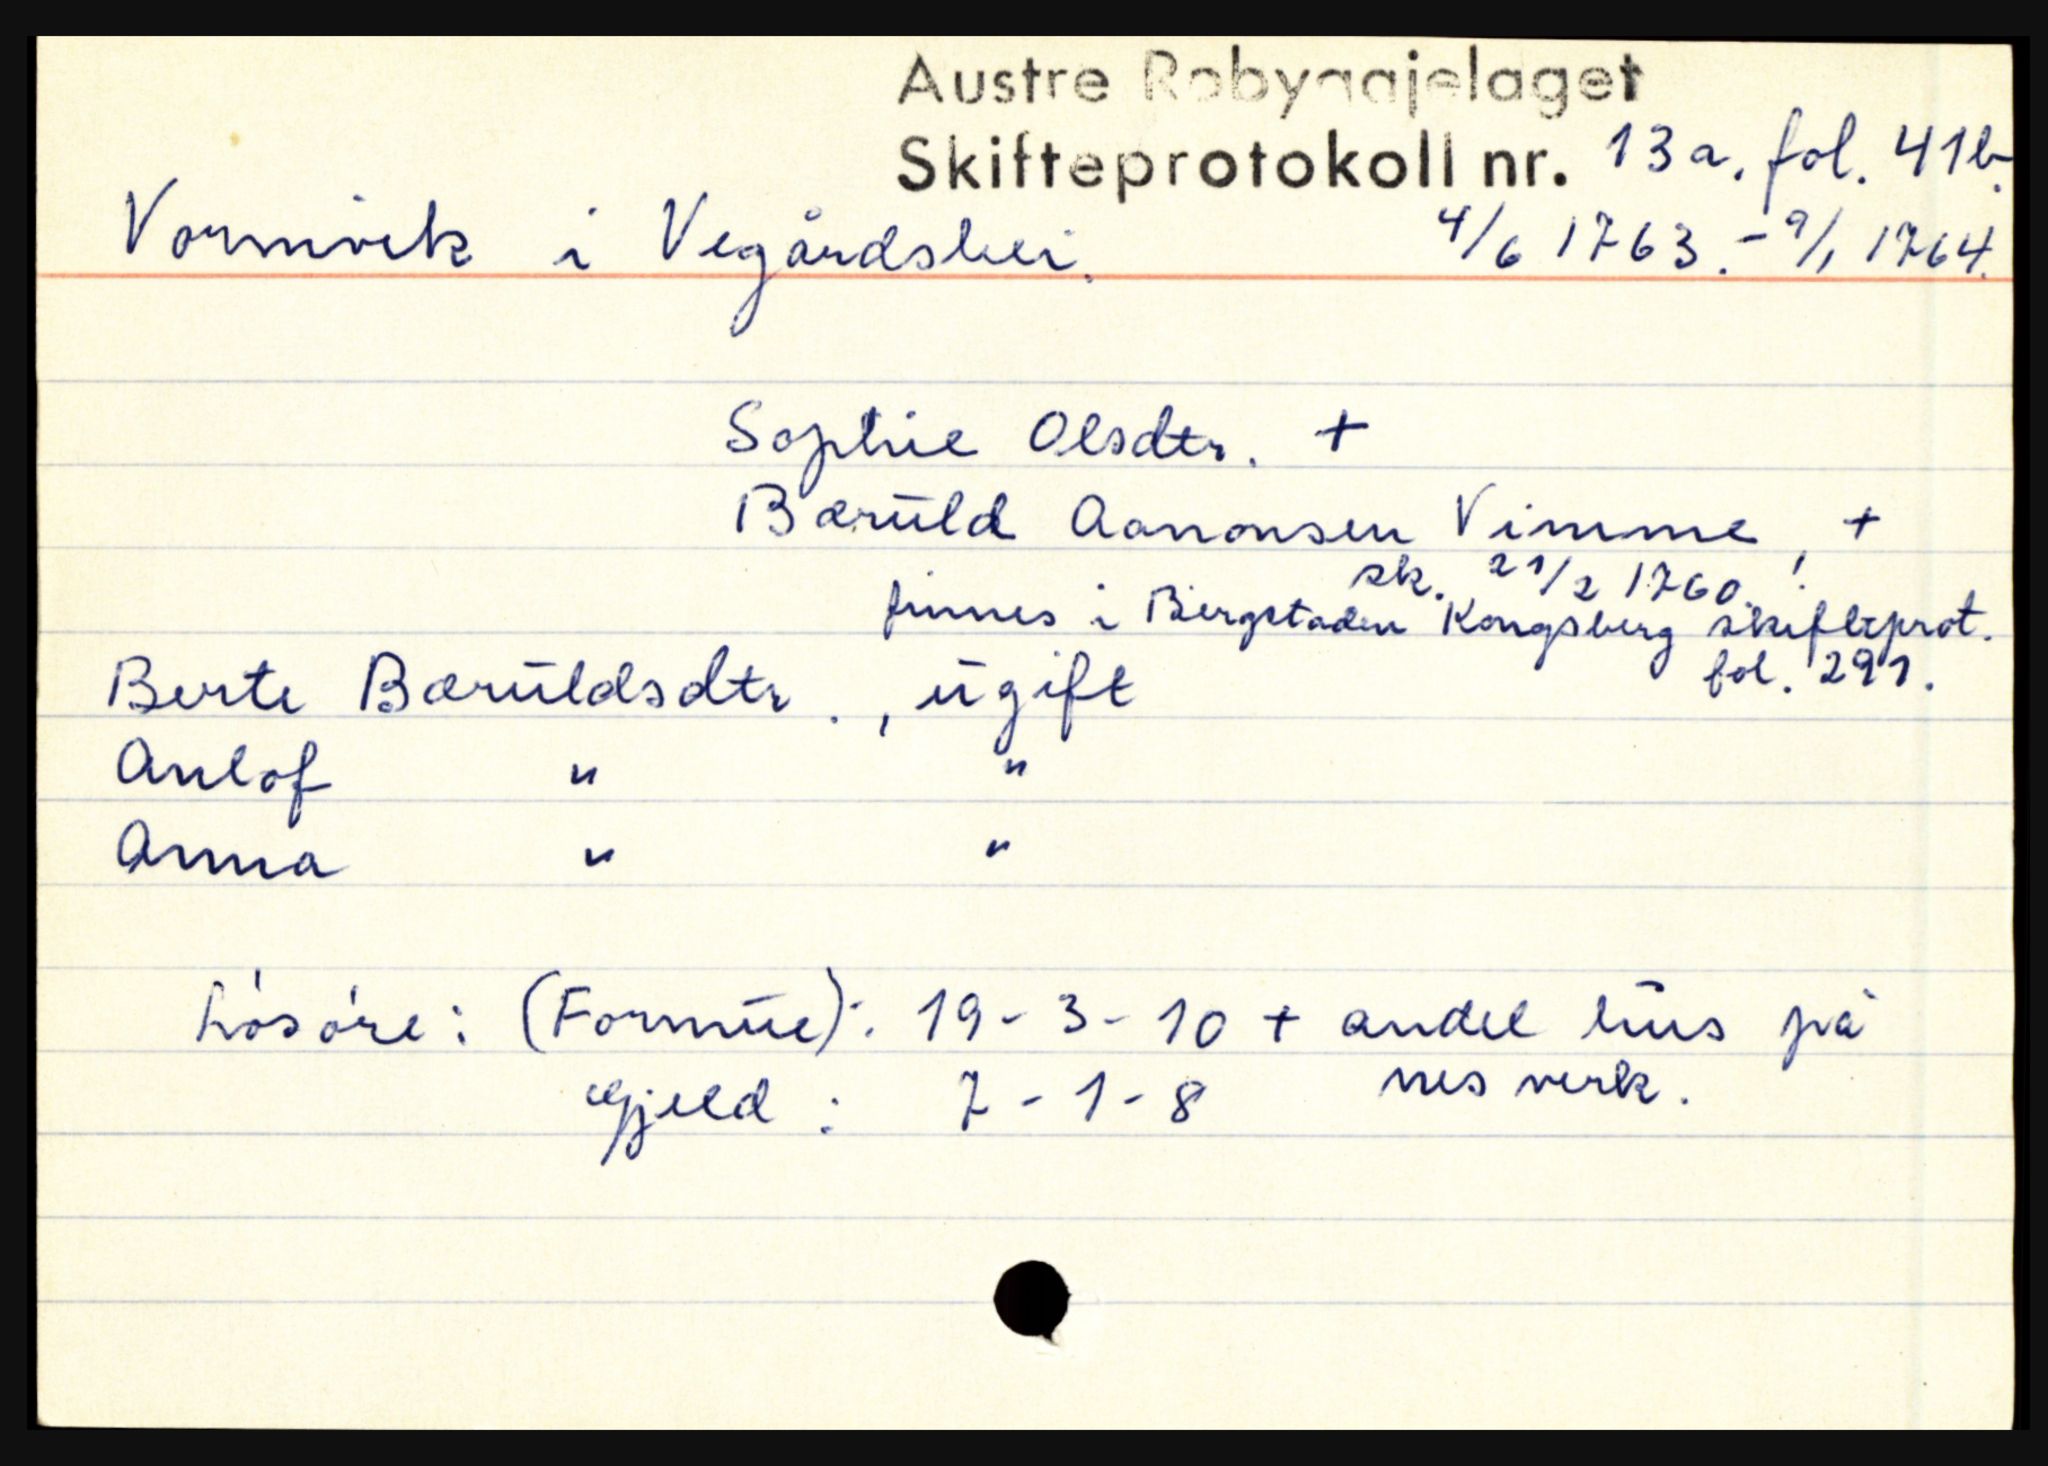 Austre Robyggjelaget
Skifteprotokoll nr. 13a. fol. 41b.
Vormvik i Vegårdshei. 4/6 1763. - 9/1 1764.
Sophie Olsdtr. +
Bæruld Aanonsen Vimme, +
sk. 21/2 1760.!
finnes i Bergstaden Kongsberg skifteprot.
fol. 291.
Berte Bæruldsdtr., ugift
Anlof " "
Anna " "
Lösöre: (Formue): 19-3-10 + andel hus på
Gjeld: 7-1-8 nes verk.